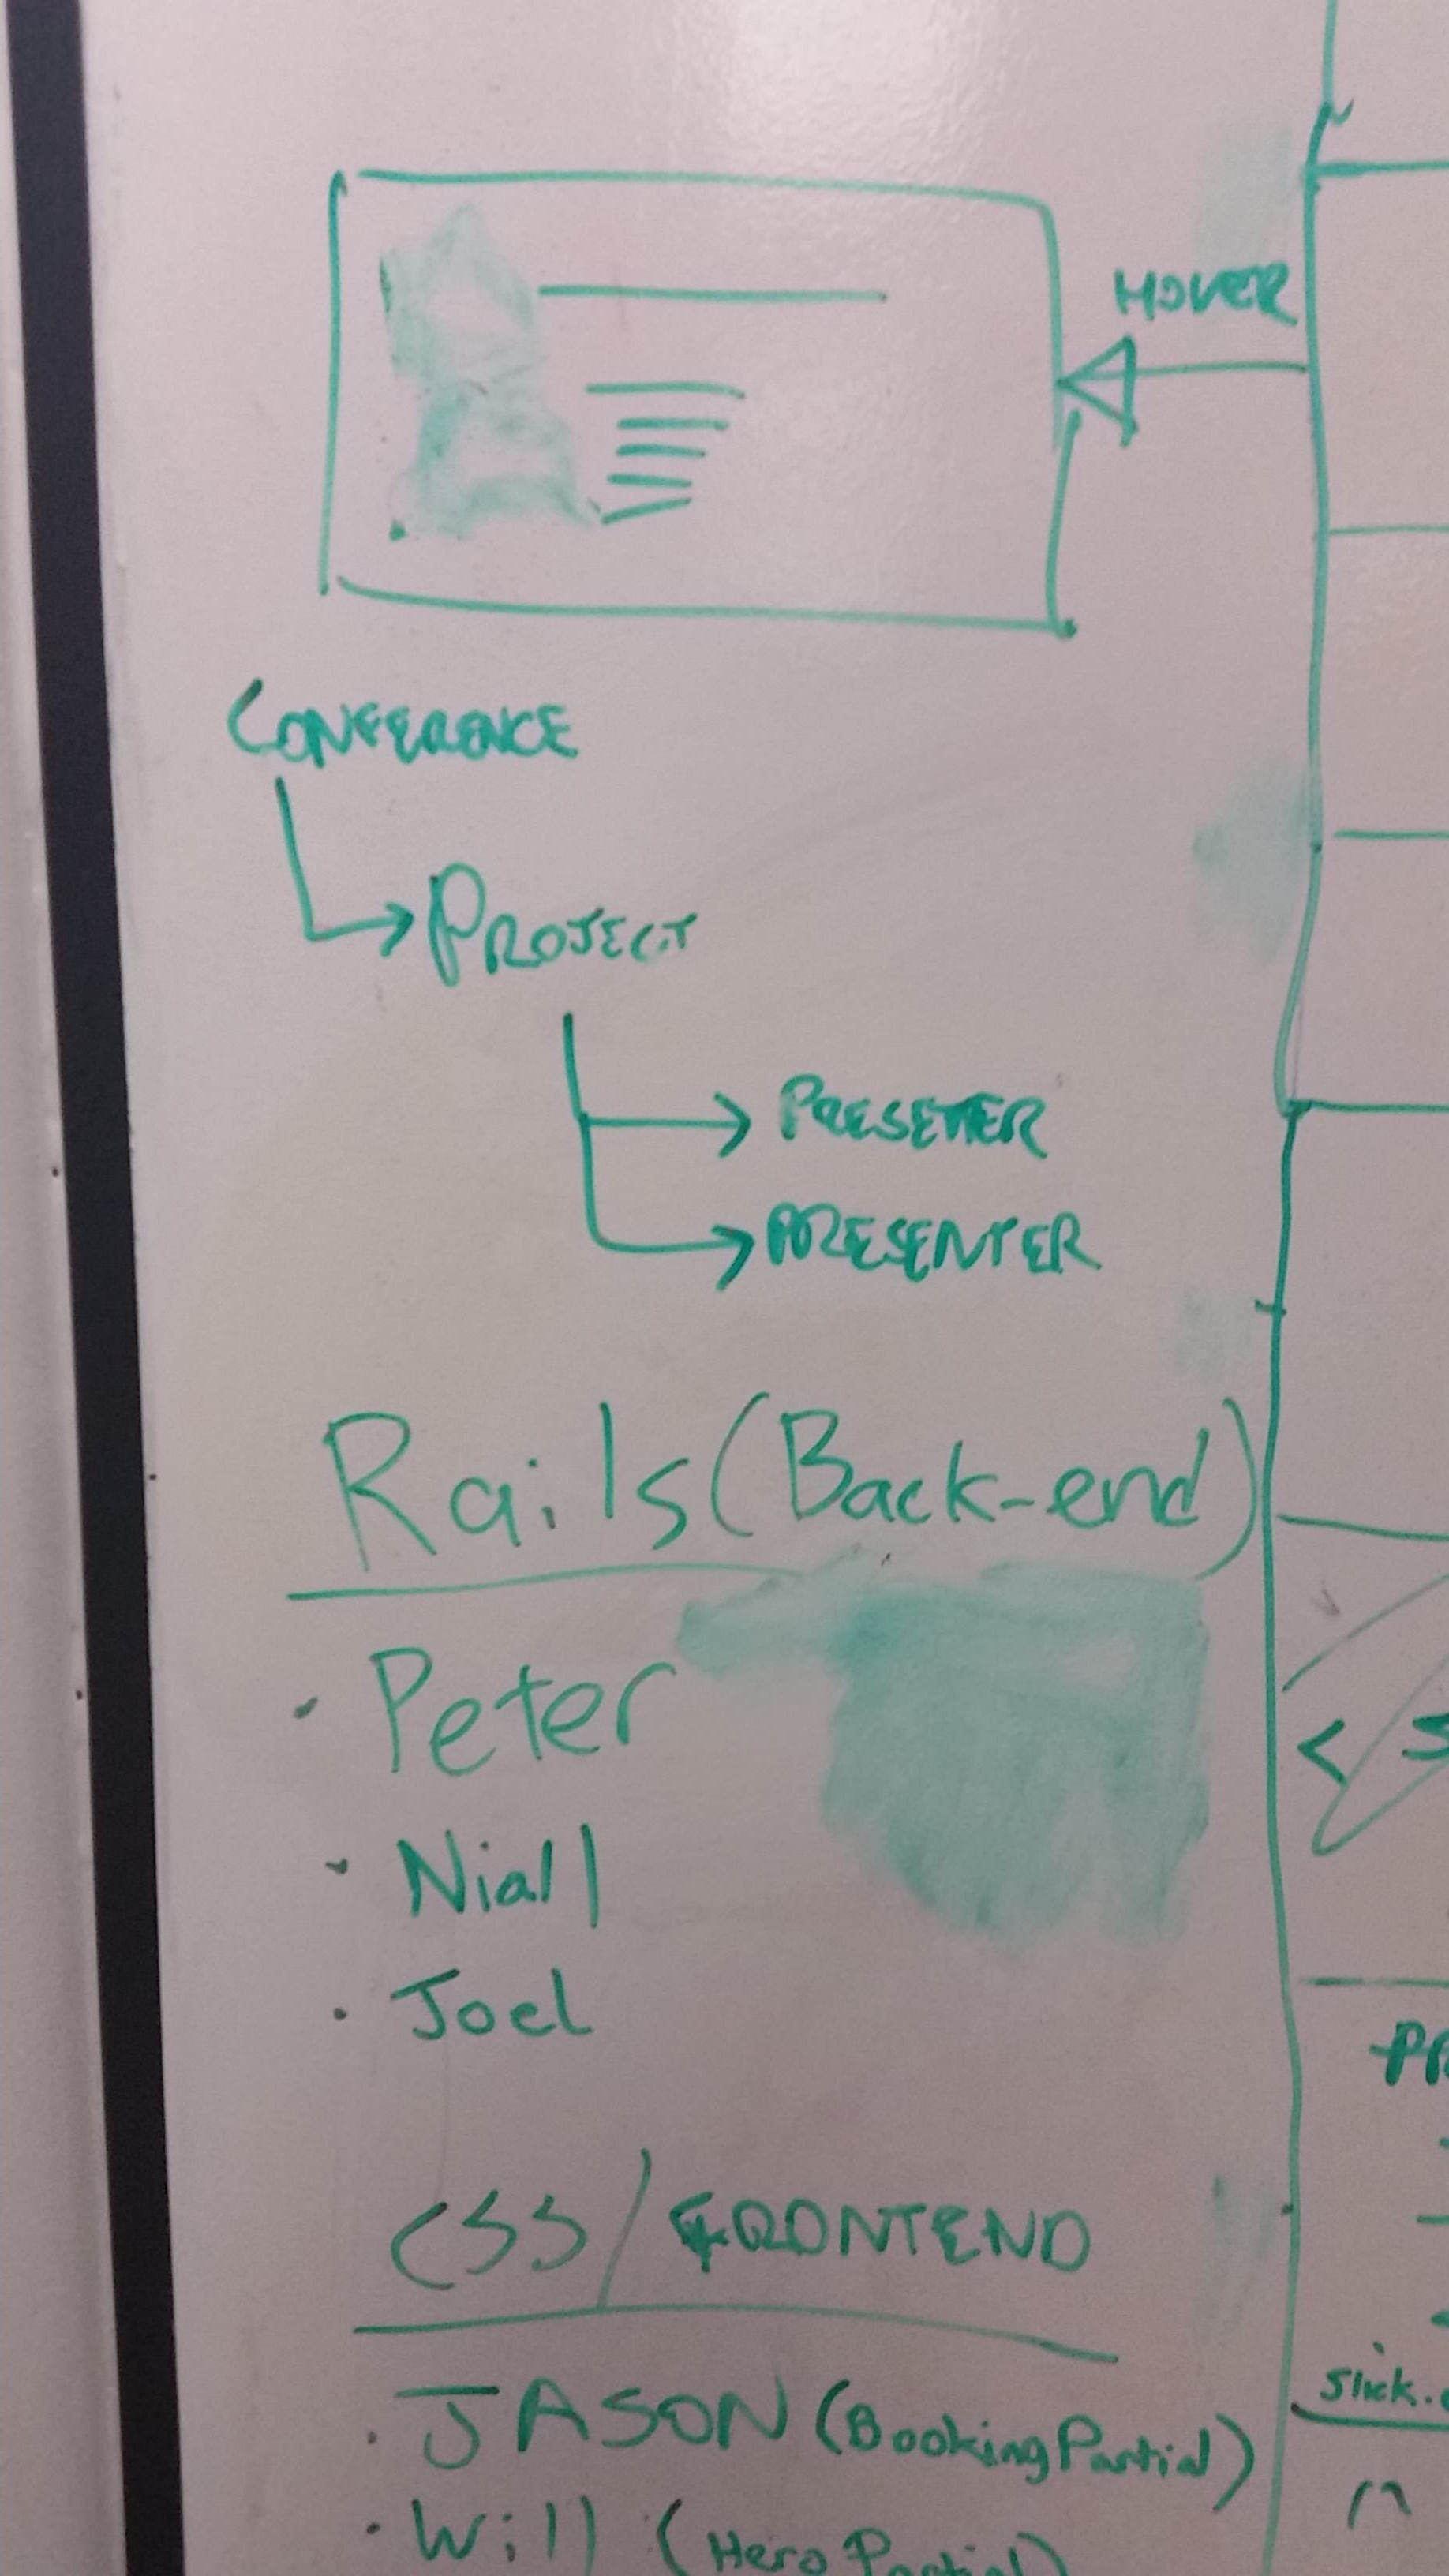 HOVER
CONFERENCE
PROJECT
PRESETTER
PRESENTER
Rails (Back-end)
· Peter
· Niall
· Joel
CSS / FRONTEND
· JASON (Booking Partial)
· Will (Hero Partial)
< S
PR
slick.